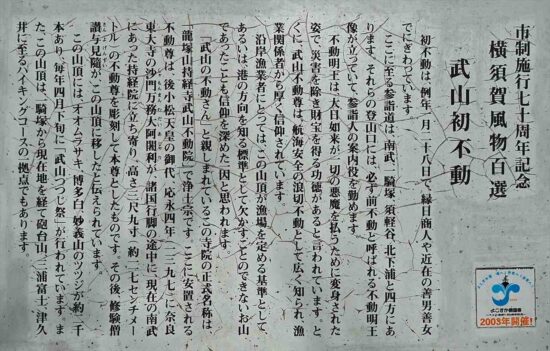 市制施行七十周年記念
横須賀風物百選
武山初不動
初不動は、例年一月二十八日で、縁日商人や近在の善男善女
でにぎわっています。
ここに至る参詣道は、南武、騎塚、須軽谷、北下浦と四方にあ
ります。それらの登山口には、必ず前不動と呼ばれる不動明王
像が立っていて、参詣人の案内役を勤めます。
不動明王は、大日如来が一切の悪魔を払うために変身された
姿で、災害を除き財宝を得る功徳があると言われています。と
くに、武山不動尊は、航海安全の浪切不動として広く知られ、漁
業関係者から厚く信仰されています。
沿岸漁業者にとっては、この山頂が漁場を定める基準として、
あるいは、港の方向を知る標準として欠かすことのできないお山
であったことも信仰を深めた一因と思われます。
「武山の不動さん」と親しまれているこの寺院の正式名称は、
龍塚山持経寺武山不動院で浄土宗です。ここに安置される
不動尊像は、後小松天皇の御代、応永四年(一三九七)に奈良
東大寺の沙門万務大阿闍利が、諸国行脚の途中に、現在の南武
にあった持経院に立ち寄り、高さ三尺九寸(約一一七センチメー
トル)の不動尊を彫刻して本尊としたものです。その後、修験僧
讃与見随が、この山頂に移したと伝えられています。
この山頂には、オオムラサキ、博多白、妙義山のツツジが約二千
本あり、毎年四月下旬に「武山つつじ祭」が行われています。ま
た、この山頂は、騎塚から現在地を経て砲台山、三浦富士、津久
井に至るハイキングコースの一拠点でもあります。
よこすか開国祭
2003年開催!